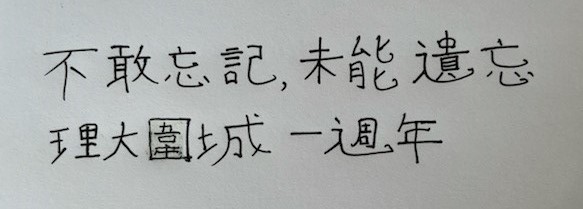 不敢忘記,未能遺忘
理大圍城一週年